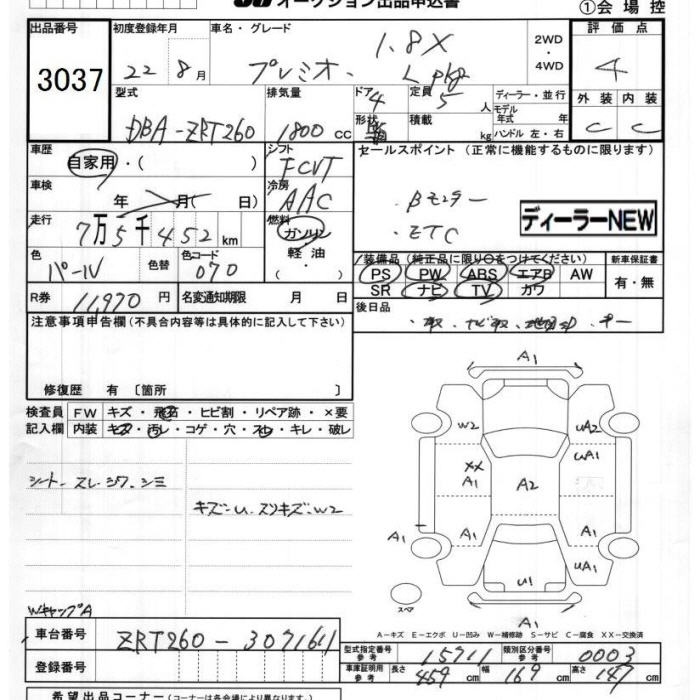 オークション出品申込書
①会場控
出品番号 初度登録年月 車名・グレード 評価点
3037
22 8月 プレミオ 1.8X L pkg 2WD ・4WD 4
型式 排気量 ドア 4 定員 5人 ディーラー・並行 外装 内装
DBA-ZRT260 1800cc 形状 積載 kg モデル年式 年 ハンドル 左・右 C C
車歴 自家用・( ) シフト FCVT セールスポイント (正常に機能するものに限ります)
車検 年 月( 日) 冷房 AAC Bモニター
走行 7万5千452km 燃料 ガソリン・軽油・ ETC ディーラーNEW
色 パール 色替 色コード 070 装備品 (純正品に限り○をつけてください) 新車保証書
PS PW ABS エアB AW 有・無
SR ナビ TV カワ
R券 11,970円 名変通知期限 月 日 後日品
注意事項申告欄(不具合内容等は具体的に記入して下さい)
修復歴 有 〔箇所 〕
検査員 FW キズ・飛石・ヒビ割・リペア跡・×要
記入欄 内装 キズ・汚レ・コゲ・穴・スレ・キレ・破レ
シート スレ・シワ・シミ
キズ・U・スリキズ・W2
WキャップA
A1
W2 UA2
XX UA1
A1 A2
A1 A1 A1 A1
UA1
U1
A1
スペア
A-キズ E-エクボ U-凹み W-補修跡 S-サビ C-腐食 XX-交換済
車台番号 ZRT260-3071611
登録番号
型式指定番号 参考 15911 類別区分番号 参考 0003
車庫証明用 参考 長さ 459cm 幅 169cm 高さ 147cm
希望出品コーナー (コーナーは各会場により異なります。)